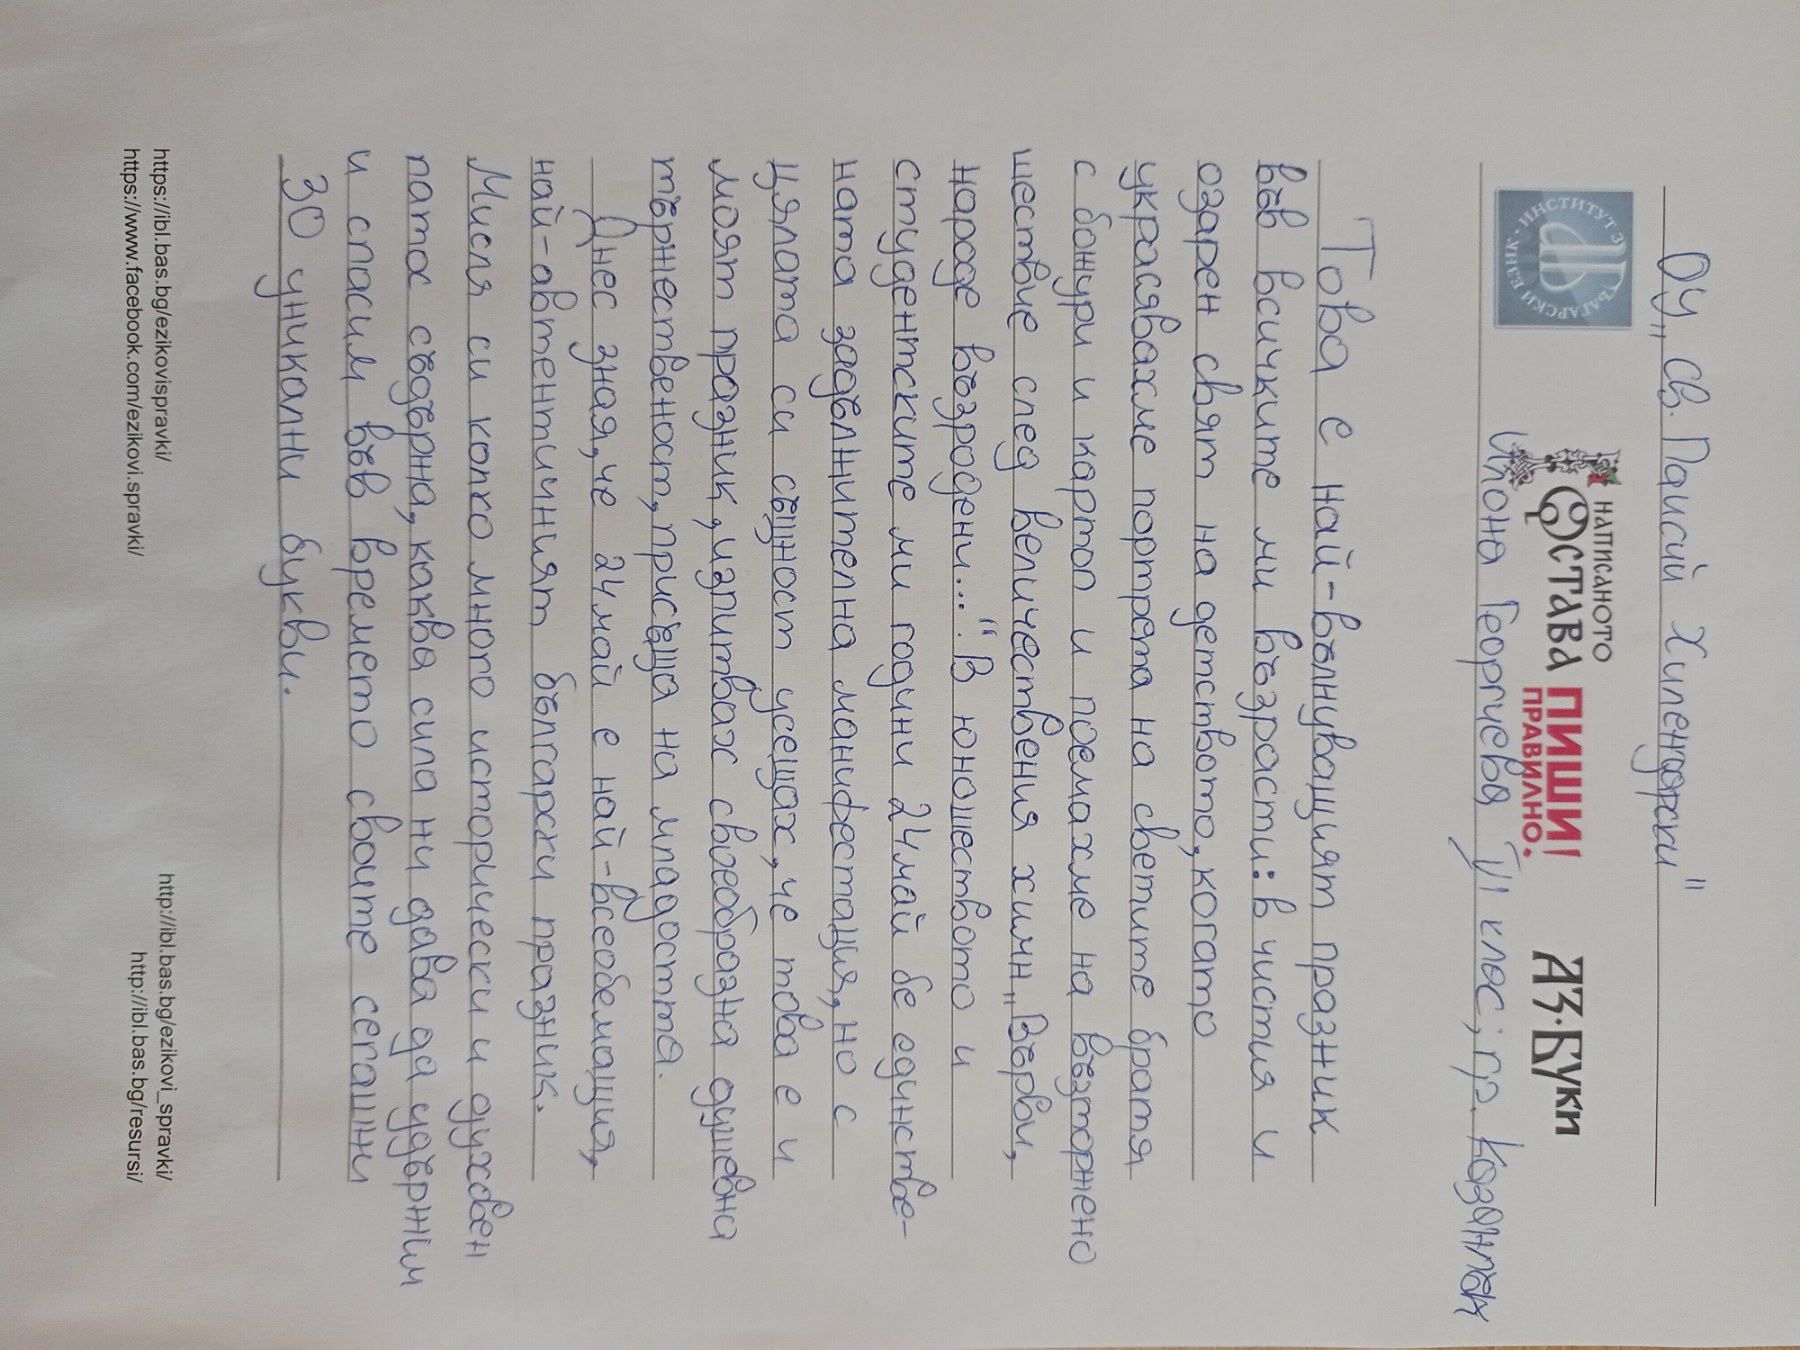 ОУ „Св. Паисий Хилендарски"
ИНСТИТУТ ЗА БЪЛГАРСКИ ЕЗИК
НАПИСАНОТО
ОСТАВА
ПИШИ
ПРАВИЛНО!
АЗ·БУКИ
Илона Георгиева VI клас; гр. Казанлък
Това е най-вълнуващият празник
във всичките ми възрасти: в чистия и
озарен свят на детството, когато
украсявахме портрета на светите братя
с божури и картол и поемахме на възторжено
шествие след величествения химн „Върви,
народе възродени...". В юношеството и
студентските ми години 24 май бе единстве-
ната задължителна манифестация, но с
цялата си същност усещах, че това е и
моят празник, изпитвах своеобразна душевна
тържественост, присъща на младостта.
Днес зная, че 24 май е най-всеобемащия,
най-автентичният български празник.
Мисля си колко много исторически и духовен
патос съдържа, каква сила ни дава да удържим
и спасим във времето своите сегашни
30 уникални букви.
https://ibl.bas.bg/ezikovispravki/
https://www.facebook.com/ezikovi.spravki/
http://ibl.bas.bg/ezikovi_spravki/
http://ibl.bas.bg/resursi/